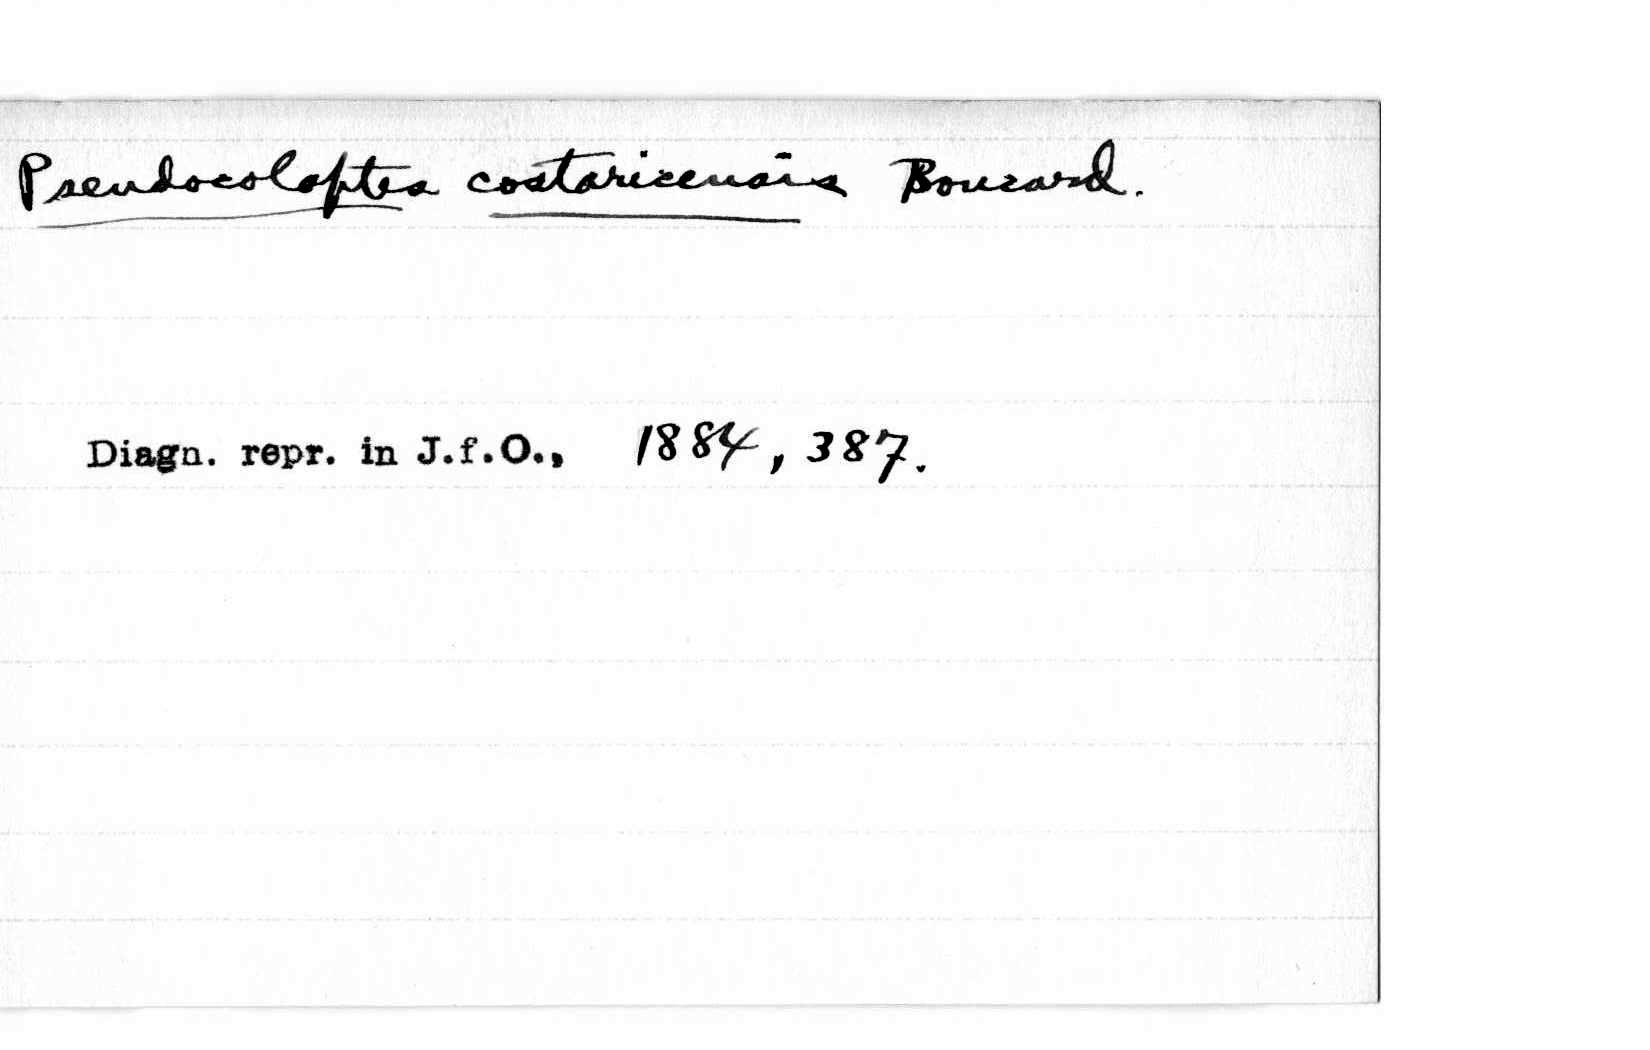 Pseudocolaptes costaricensis Boucard.
Diagn. repr. in J.f.O., 1884, 387.